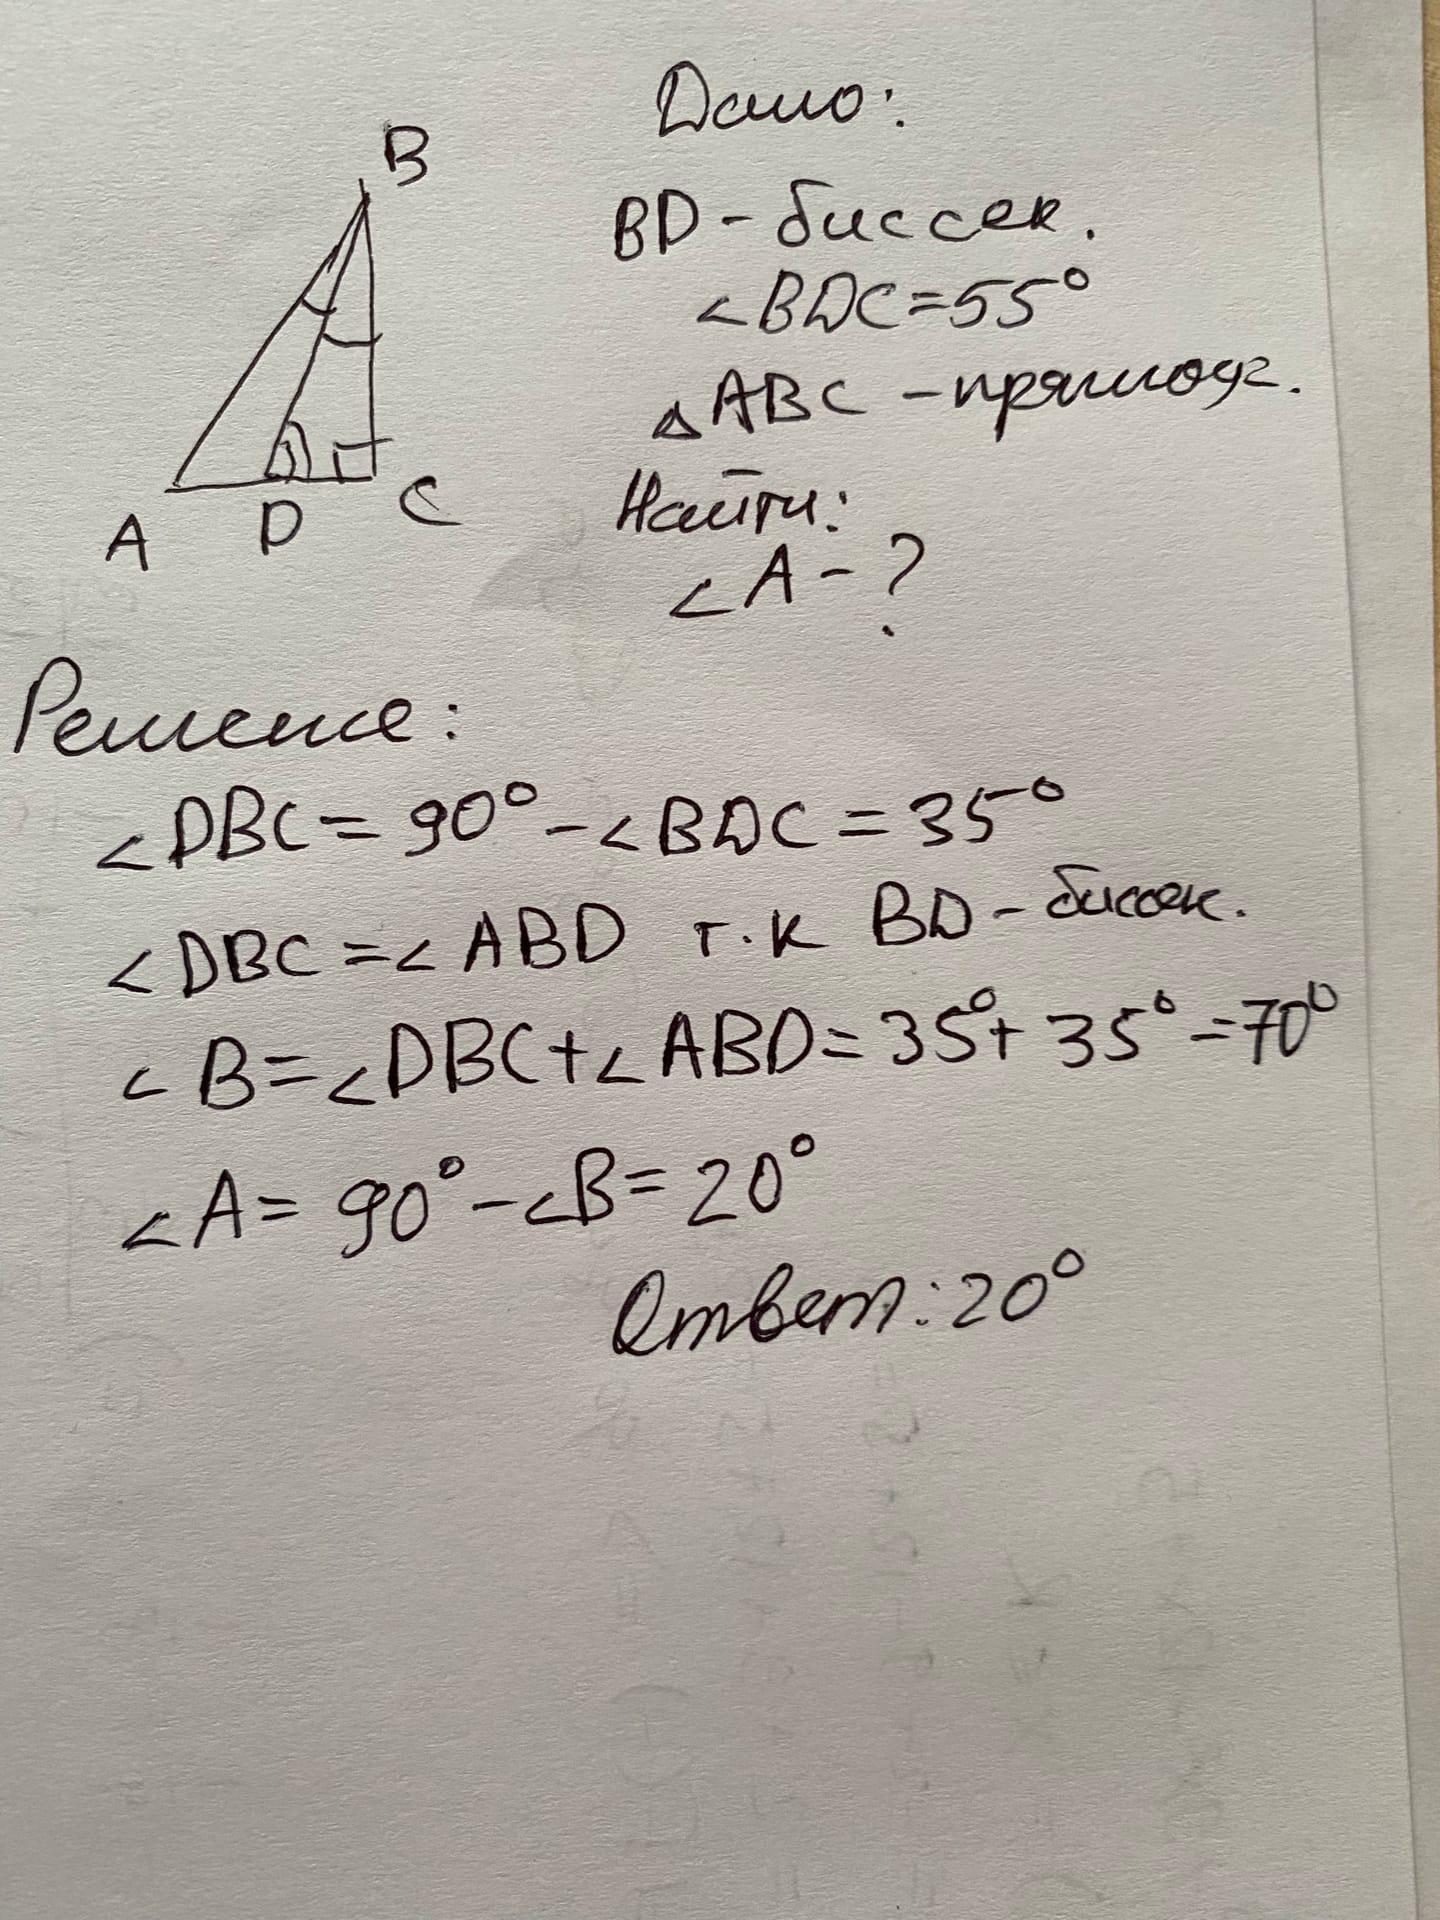 B
A
D
C
Дано:
BD - биссек.
∠BDC=55°
△ABC - прямоуг.
Найти:
∠A - ?
Решение:
∠DBC = 90° - ∠BDC = 35°
∠DBC = ∠ABD т.к BD - биссек.
∠B = ∠DBC + ∠ABD = 35° + 35° = 70°
∠A = 90° - ∠B = 20°
Ответ: 20°